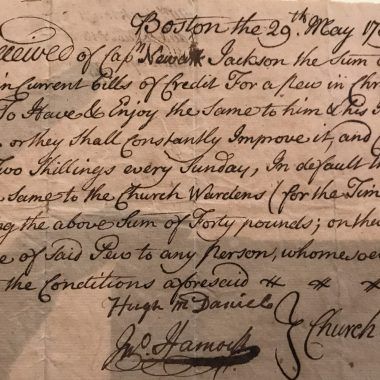 Boston the 29th May 173
eceived of Capn Newark Jackson the Sum
in Current Bills of Credit For a Pew in Chr
To Have & Enjoy the Same to him & his
or they shall Constantly Improve it, and
Two Shillings every Sunday, In default th
same to the Church Wardens (for the Tim
ng the above Sum of Forty pounds; on the
e of said Pew to any person, whomsoe
the Conditions aforesaid
Hugh McDaniel
Jno. Hamock } Church